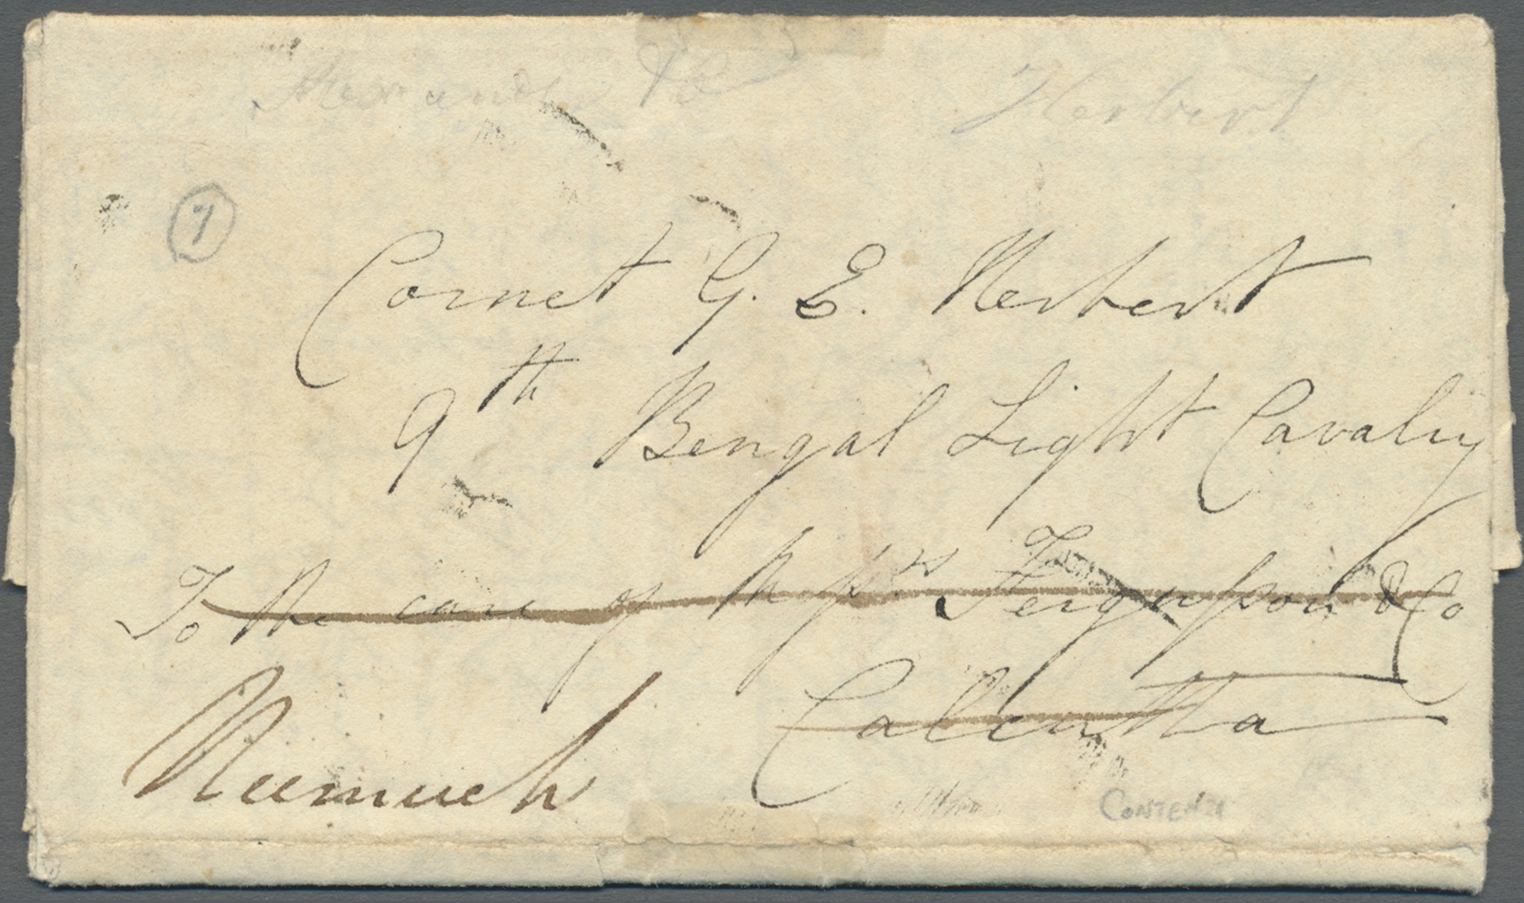 Herbert
7
Cornet G. E. Herbert
9th Bengal Light Cavalry
To the care of Messrs Fergusson & Co
Calcutta
Neemuch
CONTENTS